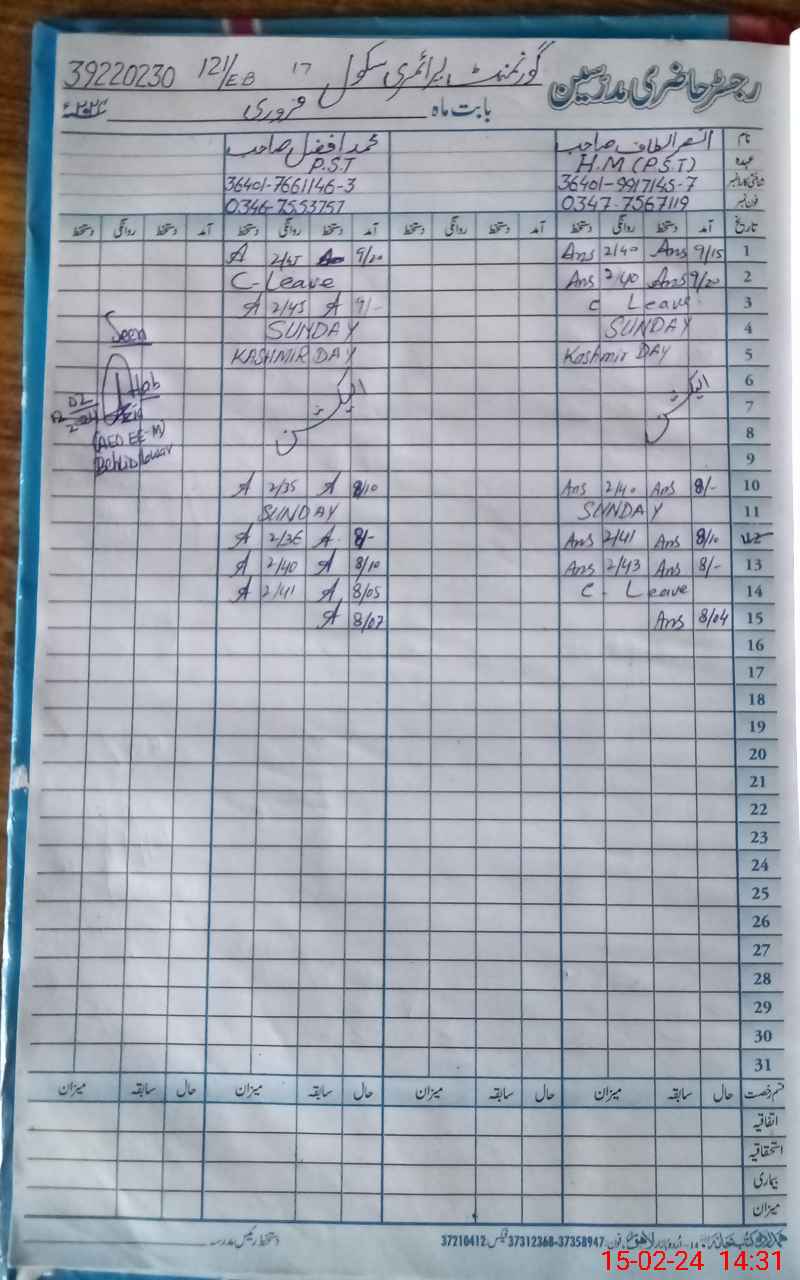 رجسٹر حاضری مدرسین گورنمنٹ پرائمری سکول 17 121/EB 39220230
بابت ماہ فروری ۲۰۲۴ء
نام انصر الطاف صاحب محمد افضل صاحب
عہدہ H.M (P.S.T) P.S.T
شناختی کارڈ نمبر 36401-9917145-7 36401-7661146-3
فون نمبر 0347-7567119 0346-7553757
تاریخ آمد دستخط روانگی دستخط آمد دستخط روانگی دستخط آمد دستخط روانگی دستخط آمد دستخط روانگی دستخط
1 9/15 Ans 2/40 Ans 9/20 A 2/45 A
2 9/20 Ans 2/40 Ans C-Leave
3 C Leave 9/- A 2/45 A
4 SUNDAY SUNDAY Seen
5 Kashmir DAY KASHMIR DAY
6
7 الیکشن الیکشن
8 (AEO EE-M)
9
10 8/- Ans 2/40 Ans 8/10 A 2/35 A
11 SUNDAY SUNDAY
12 8/10 Ans 2/41 Ans 8/- A 2/36 A
13 8/- Ans 2/43 Ans 8/10 A 2/40 A
14 C- Leave 8/05 A 2/41 A
15 8/04 Ans 8/07 A
16
17
18
19
20
21
22
23
24
25
26
27
28
29
30
31
قسم رخصت حال سابقہ میزان حال سابقہ میزان حال سابقہ میزان حال سابقہ میزان
اتفاقیہ
استحقاقیہ
بیماری
میزان
اردو بازار لاہور فون: 37312368-37358947 فیکس: 37210412 دستخط رئیس مدرسہ
15-02-24 14:31